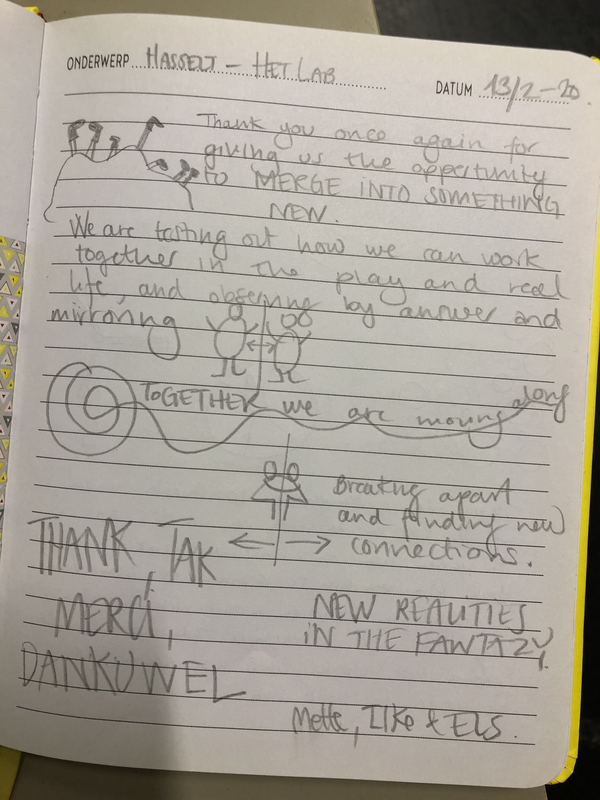 ONDERWERP HASSELT – HET LAB
DATUM 13/2-20.
Thank you once again for
giving us the opportunity
to MERGE INTO SOMETHING
NEW.
We are tasting out how we can work
together in the play and real
life, and observing by answer and
mirroring
TOGETHER we are moving along
Breaking apart
and finding new
connections.
THANK, TAK
MERCI,
DANKUWEL
NEW REALITIES
IN THE FANTAZY.
Mette, Ilke & ELS.